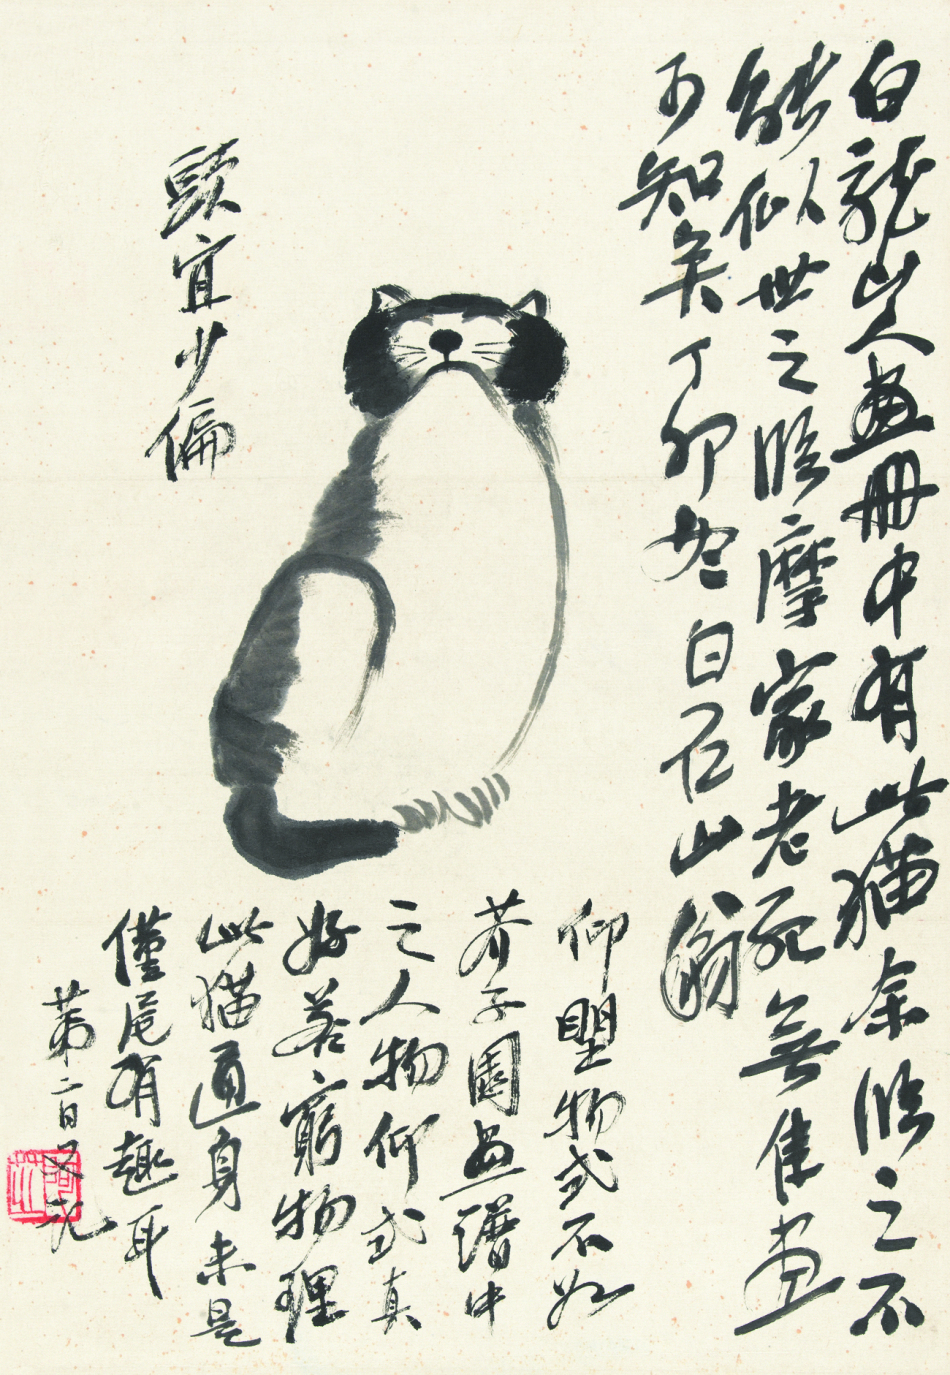 白龍山人画冊中有此猫余臨之不
能似世之臨摩家老死無隹画
可知矣丁卯冬白石山翁
頭宜少偏
仰望物式不如
芥子園画譜中
之人物仰式真
好若窮物理
此猫通身未是
僅尾有趣耳
第二日又記